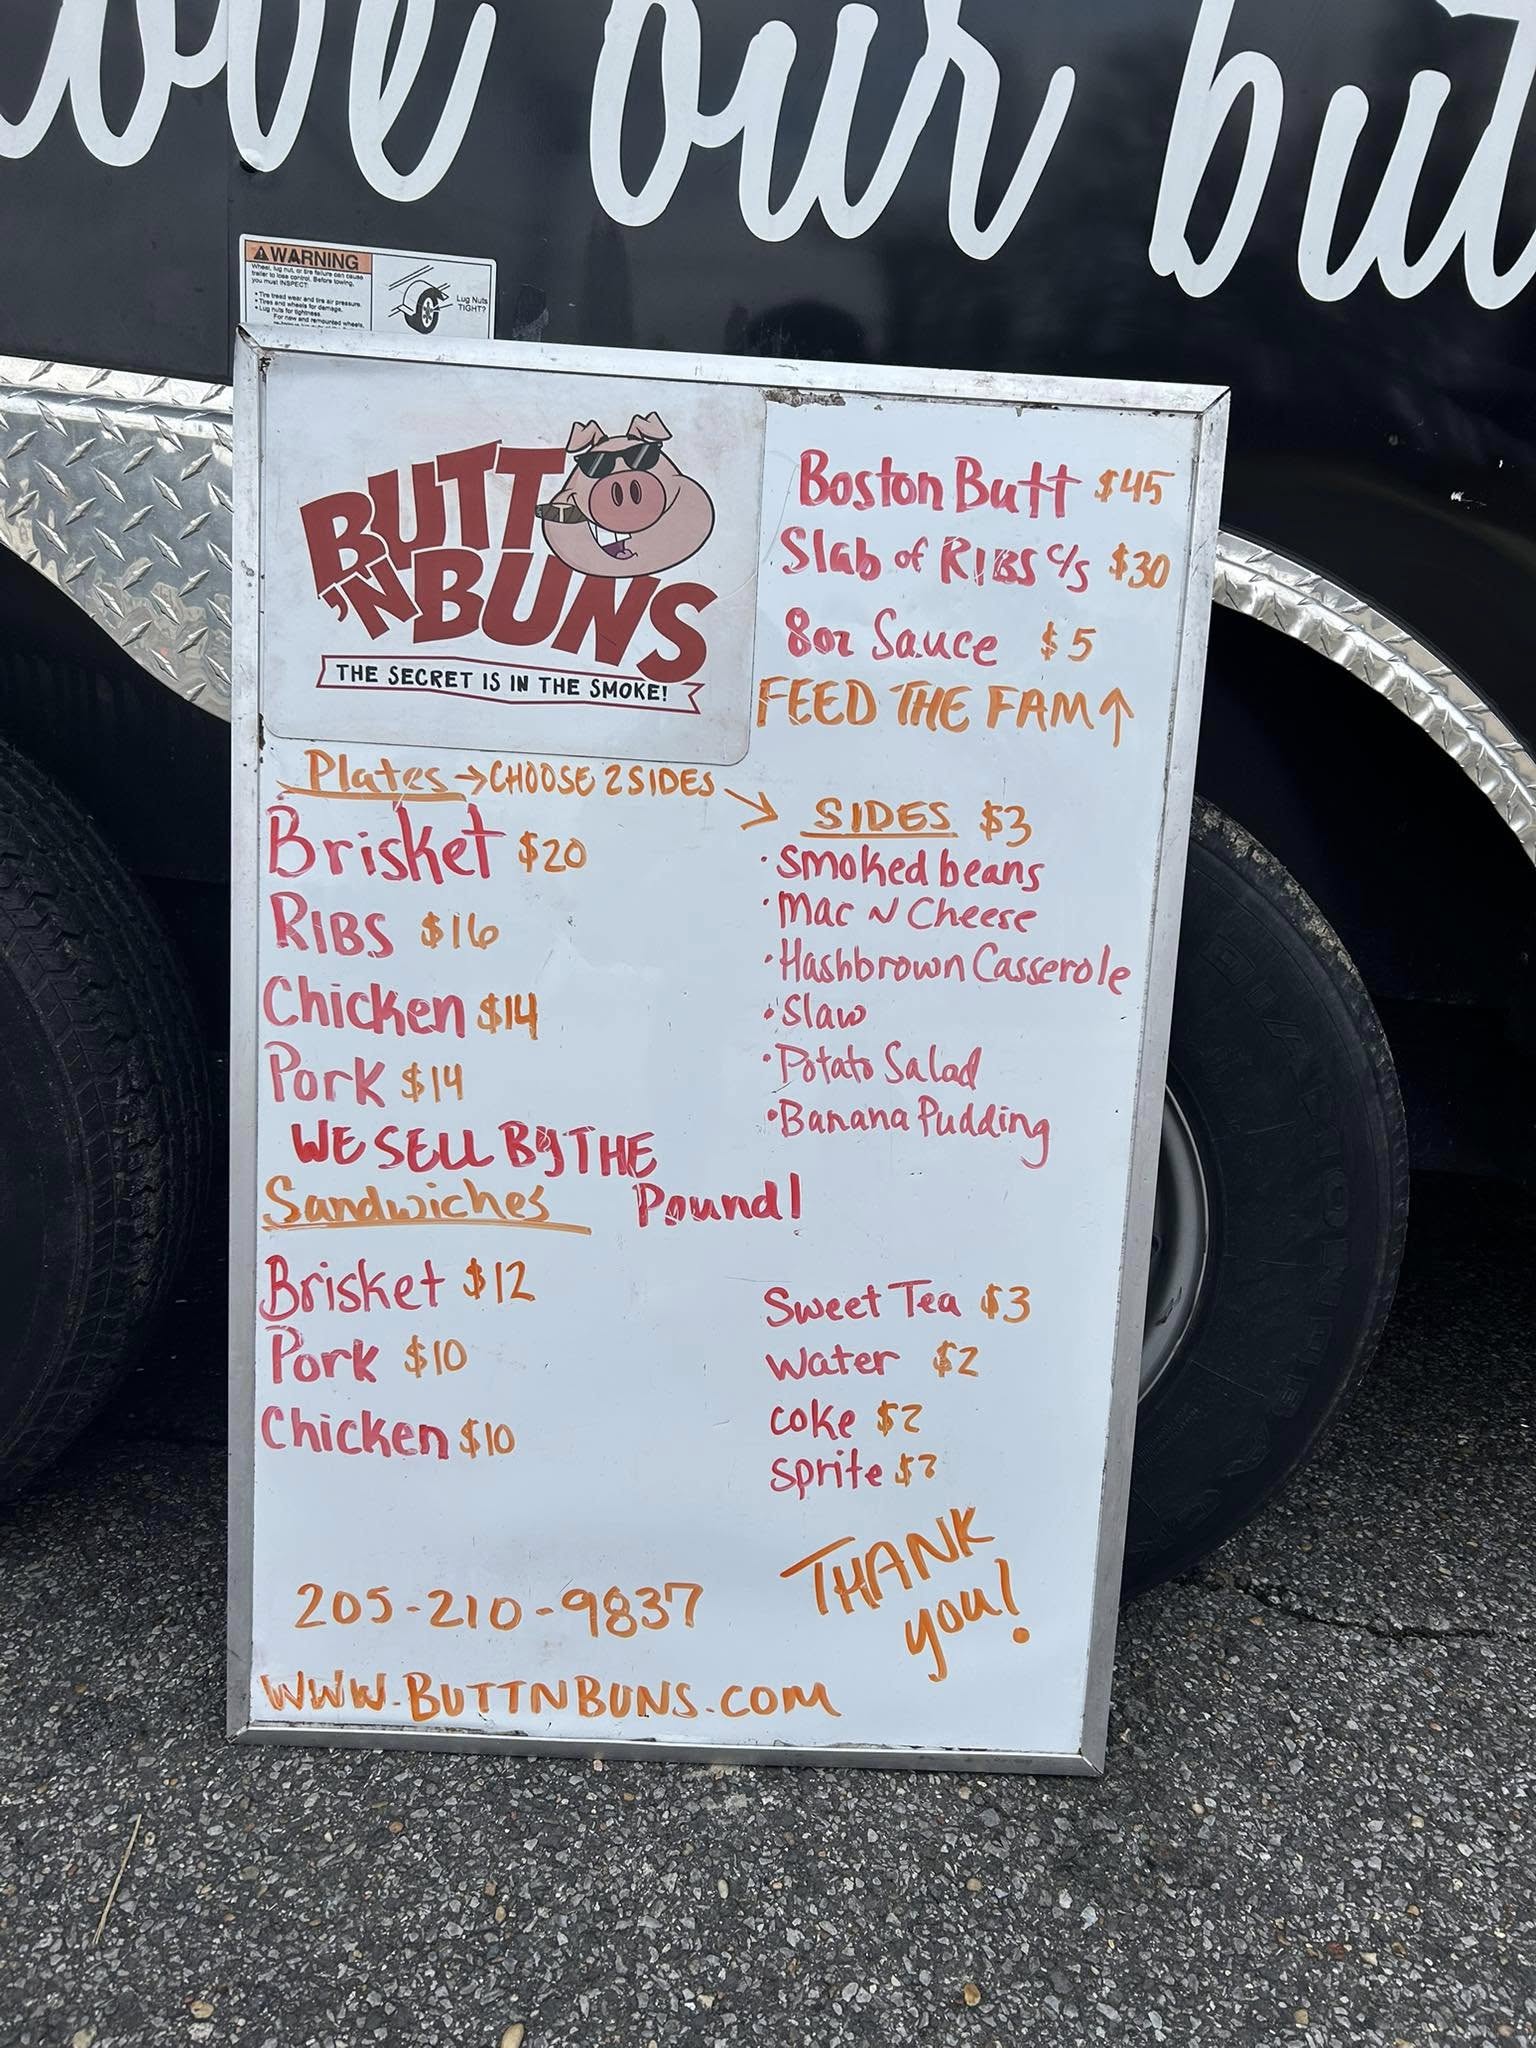 love our but
WARNING
Wheel, lug nut, or tire failure can cause
trailer to lose control. Before towing,
you must INSPECT:
• Tire tread wear and tire air pressure.
• Tires and wheels for damage.
• Lug nuts for tightness.
For new and remounted wheels,
Lug Nuts
TIGHT?
BUTT
'N BUNS
THE SECRET IS IN THE SMOKE!
Boston Butt $45
Slab of RIBS c/s $30
8oz Sauce $5
FEED THE FAM ↑
Plates → CHOOSE 2 SIDES
Brisket $20
RIBS $16
Chicken $14
Pork $14
WE SELL By THE
Pound!
SIDES $3
• Smoked beans
• Mac N Cheese
• Hashbrown Casserole
• Slaw
• Potato Salad
• Banana Pudding
Sandwiches
Brisket $12
Pork $10
Chicken $10
Sweet Tea $3
Water $2
coke $2
sprite $2
THANK
you!
205-210-9837
WWW.BUTTNBUNS.COM